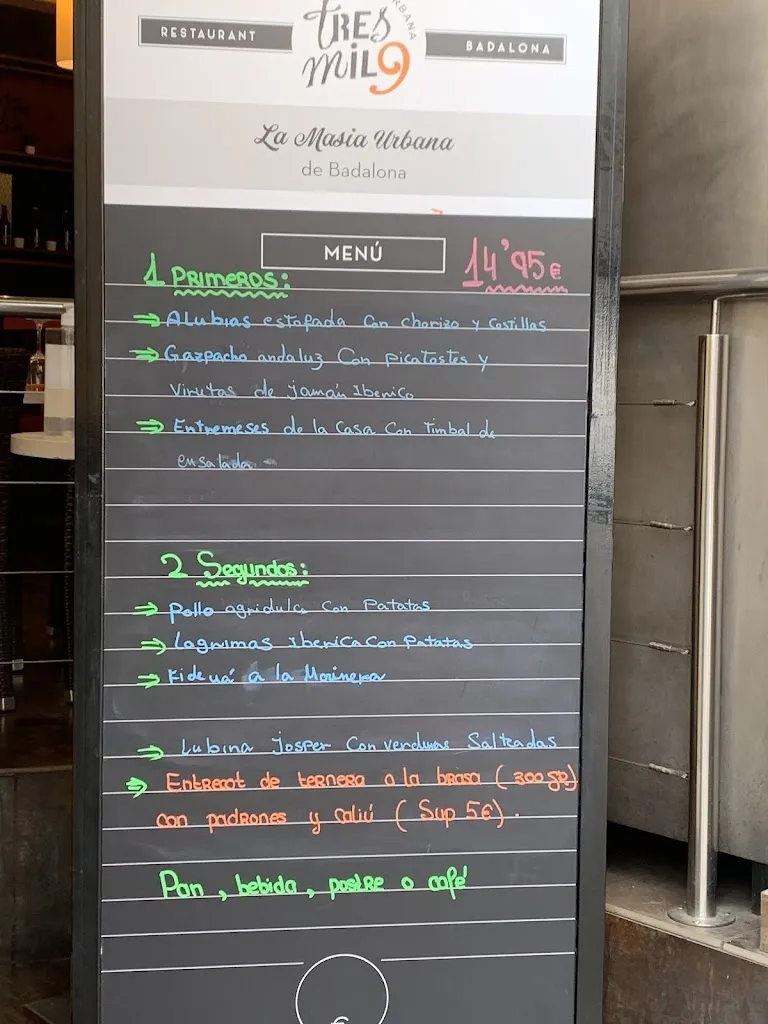 RESTAURANT
TRES
MIL9
URBANA
BADALONA
La Masia Urbana
de Badalona
MENÚ
14'95€
1 PRIMEROS:
⇒ Alubias estofada con chorizo y costillas
⇒ Gazpacho andaluz con picatostes y
virutas de jamón Iberico
⇒ Entremeses de la casa con timbal de
ensalada
2 Segundos:
⇒ Pollo agridulce con Patatas
⇒ Lagrimas Iberica con Patatas
⇒ Fideuá a la Marinera
⇒ Lubina Josper con verduras Salteadas
⇒ Entrecot de ternera a la brasa (300gr)
con padrones y caliú (Sup 5€).
Pan, bebida, postre o café